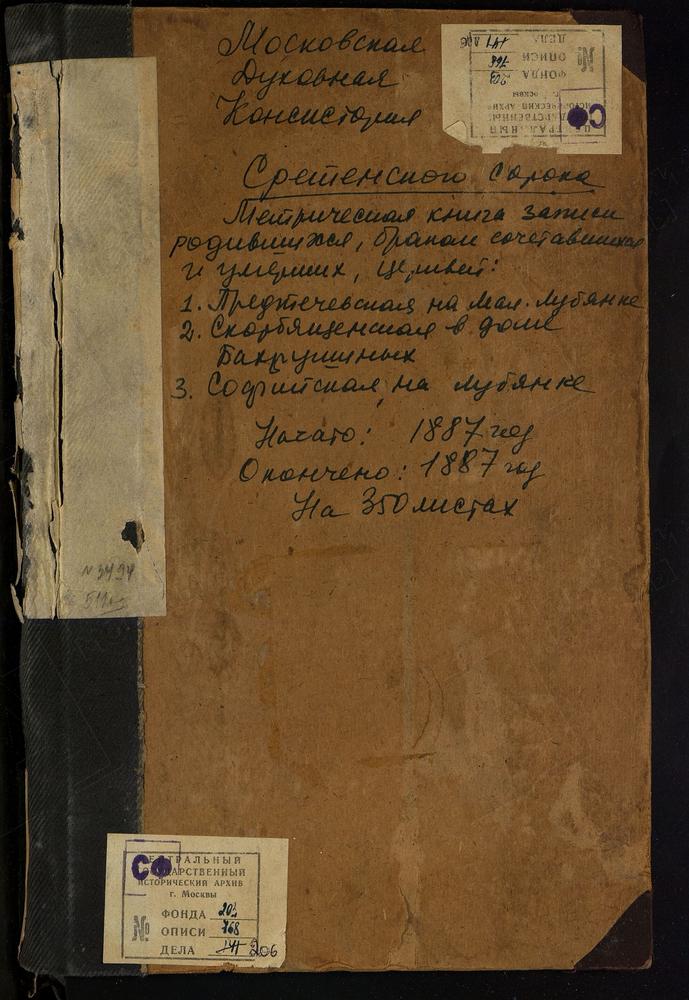 Московская
Духовная
Консистория
Сретенского сорока
Метрическая книга записи
родившихся, браком сочетавшихся
и умерших, церквей:
1. Предтечевская на Мал. Лубянке
2. Скорбященская в доме
Бахрушиных
3. Софийская, на Лубянке
Начато: 1887 год
Окончено: 1887 год
На 350 листах
ЦЕНТРАЛЬНЫЙ
ГОСУДАРСТВЕННЫЙ
ИСТОРИЧЕСКИЙ АРХИВ
г. Москвы
ФОНДА 203
№ ОПИСИ 768
ДЕЛА 206
№ 3494
ЦЕНТРАЛЬНЫЙ
ГОСУДАРСТВЕННЫЙ
ИСТОРИЧЕСКИЙ АРХИВ
г. МОСКВЫ
ФОНДА 203
№ ОПИСИ 768
ДЕЛА 206